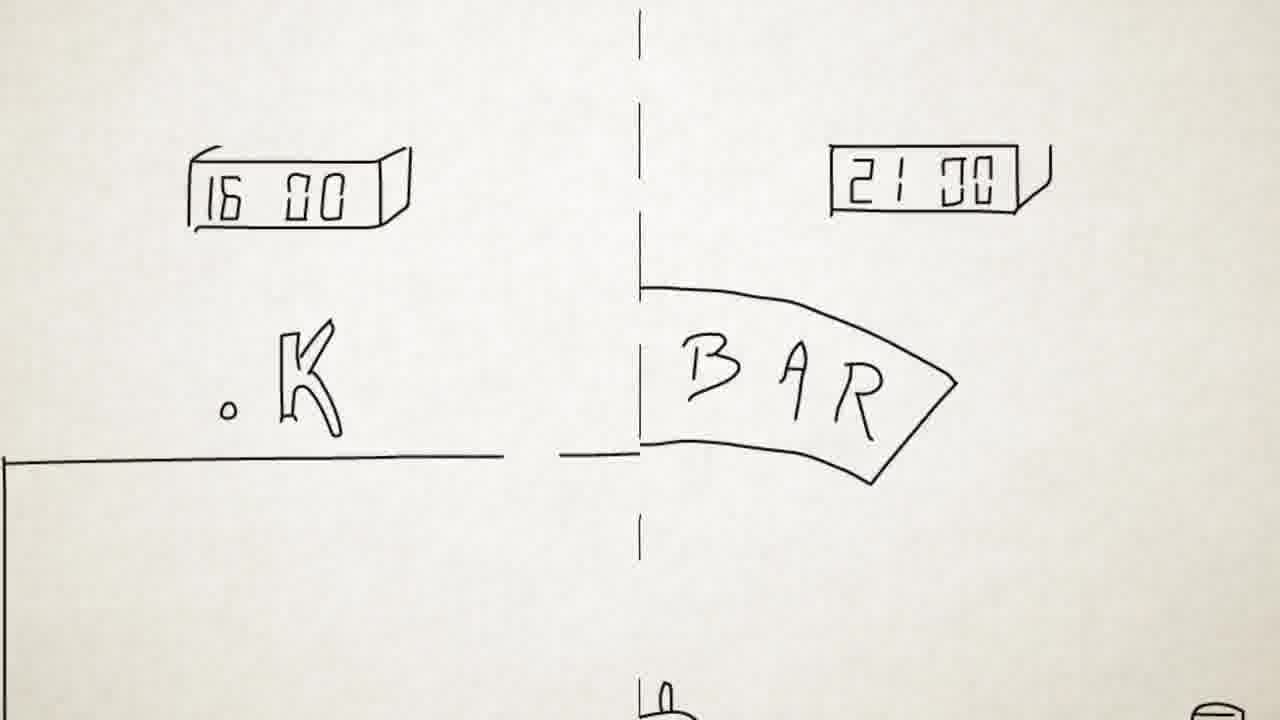 16 00
21 00
.K
BAR